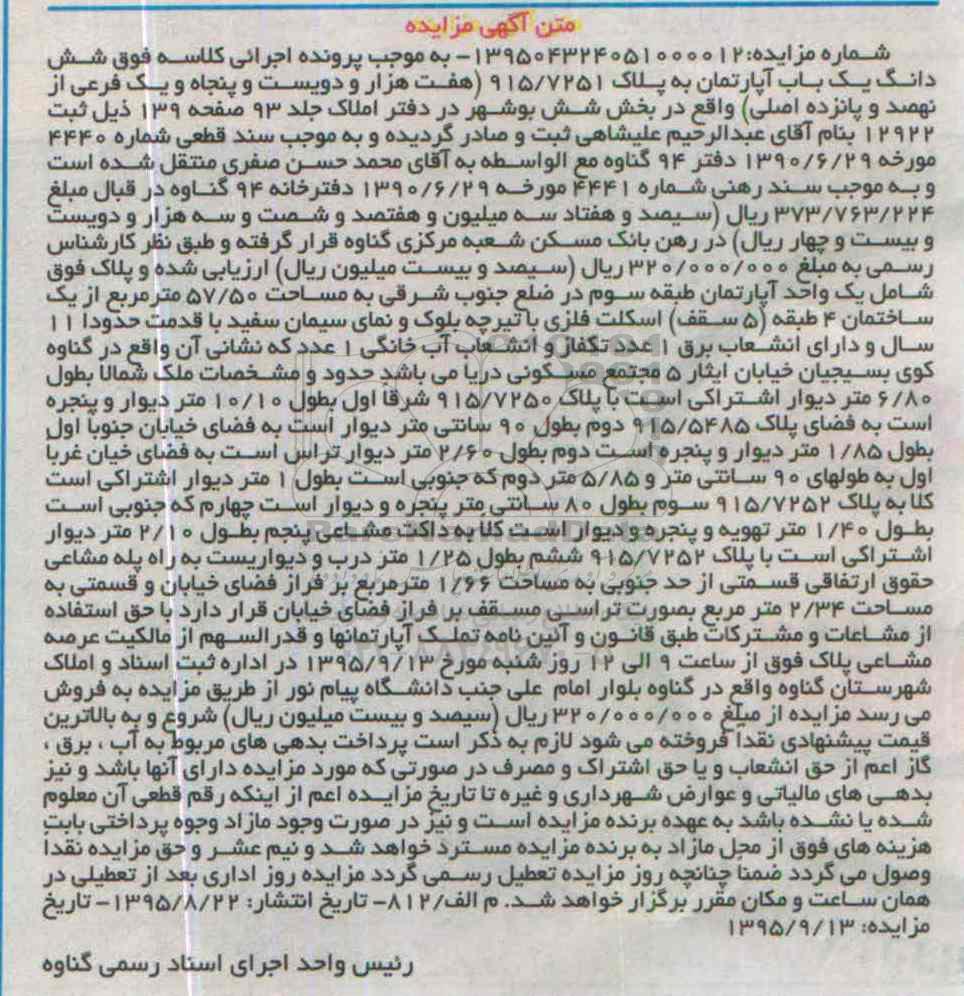 متن آگهی مزایده
شماره مزایده:۱۳۹۵۰۴۳۲۴۰۵۱۰۰۰۰۱۲- به موجب پرونده اجرائی کلاسه فوق شش
دانگ یک باب آپارتمان به پلاک ۹۱۵/۷۲۵۱ (هفت هزار و دویست و پنجاه و یک فرعی از
نهصد و پانزده اصلی) واقع در بخش شش بوشهر در دفتر املاک جلد ۹۳ صفحه ۱۳۹ ذیل ثبت
۱۲۹۲۲ بنام آقای عبدالرحیم علیشاهی ثبت و صادر گردیده و به موجب سند قطعی شماره ۴۴۴۰
مورخه ۱۳۹۰/۶/۲۹ دفتر ۹۴ گناوه مع الواسطه به آقای محمد حسن صفری منتقل شده است
و به موجب سند رهنی شماره ۴۴۴۱ مورخه ۱۳۹۰/۶/۲۹ دفترخانه ۹۴ گناوه در قبال مبلغ
۳۷۳/۷۶۳/۲۲۴ ریال (سیصد و هفتاد سه میلیون و هفتصد و شصت و سه هزار و دویست
و بیست و چهار ریال) در رهن بانک مسکن شعبه مرکزی گناوه قرار گرفته و طبق نظر کارشناس
رسمی به مبلغ ۳۲۰/۰۰۰/۰۰۰ ریال (سیصد و بیست میلیون ریال) ارزیابی شده و پلاک فوق
شامل یک واحد آپارتمان طبقه سوم در ضلع جنوب شرقی به مساحت ۵۷/۵۰ مترمربع از یک
ساختمان ۴ طبقه (۵ سقف) اسکلت فلزی با تیرچه بلوک و نمای سیمان سفید با قدمت حدودا ۱۱
سال و دارای انشعاب برق ۱ عدد تکفاز و انشعاب آب خانگی ۱ عدد که نشانی آن واقع در گناوه
کوی بسیجیان خیابان ایثار ۵ مجتمع مسکونی دریا می باشد حدود و مشخصات ملک شمالا بطول
۶/۸۰ متر دیوار اشتراکی است با پلاک ۹۱۵/۷۲۵۰ شرقا اول بطول ۱۰/۱۰ متر دیوار و پنجره
است به فضای پلاک ۹۱۵/۵۴۸۵ دوم بطول ۹۰ سانتی متر دیوار است به فضای خیابان جنوبا اول
بطول ۱/۸۵ متر دیوار و پنجره است دوم بطول ۲/۶۰ متر دیوار تراس است به فضای خیان غربا
اول به طولهای ۹۰ سانتی متر و ۵/۸۵ متر دوم که جنوبی است بطول ۱ متر دیوار اشتراکی است
کلا به پلاک ۹۱۵/۷۲۵۲ سوم بطول ۸۰ سانتی متر پنجره و دیوار است چهارم که جنوبی است
بطول ۱/۴۰ متر تهویه و پنجره و دیوار است کلا به داکت مشاعی پنجم بطول ۲/۱۰ متر دیوار
اشتراکی است با پلاک ۹۱۵/۷۲۵۲ ششم بطول ۱/۲۵ متر درب و دیواریست به راه پله مشاعی
حقوق ارتفاقی قسمتی از حد جنوبی به مساحت ۱/۶۶ مترمربع بر فراز فضای خیابان و قسمتی به
مساحت ۲/۳۴ متر مربع بصورت تراسی مسقف بر فراز فضای خیابان قرار دارد با حق استفاده
از مشاعات و مشترکات طبق قانون و آئین نامه تملک آپارتمانها و قدرالسهم از مالکیت عرصه
مشاعی پلاک فوق از ساعت ۹ الی ۱۲ روز شنبه مورخ ۱۳۹۵/۹/۱۳ در اداره ثبت اسناد و املاک
شهرستان گناوه واقع در گناوه بلوار امام علی جنب دانشگاه پیام نور از طریق مزایده به فروش
می رسد مزایده از مبلغ ۳۲۰/۰۰۰/۰۰۰ ریال (سیصد و بیست میلیون ریال) شروع و به بالاترین
قیمت پیشنهادی نقدا فروخته می شود لازم به ذکر است پرداخت بدهی های مربوط به آب ، برق ،
گاز اعم از حق انشعاب و یا حق اشتراک و مصرف در صورتی که مورد مزایده دارای آنها باشد و نیز
بدهی های مالیاتی و عوارض شهرداری و غیره تا تاریخ مزایده اعم از اینکه رقم قطعی آن معلوم
شده یا نشده باشد به عهده برنده مزایده است و نیز در صورت وجود مازاد وجوه پرداختی بابت
هزینه های فوق از محل مازاد به برنده مزایده مسترد خواهد شد و نیم عشر و حق مزایده نقدا
وصول می گردد ضمنا چنانچه روز مزایده تعطیل رسمی گردد مزایده روز اداری بعد از تعطیلی در
همان ساعت و مکان مقرر برگزار خواهد شد. م الف/۸۱۲- تاریخ انتشار: ۱۳۹۵/۸/۲۲- تاریخ
مزایده: ۱۳۹۵/۹/۱۳
رئیس واحد اجرای اسناد رسمی گناوه